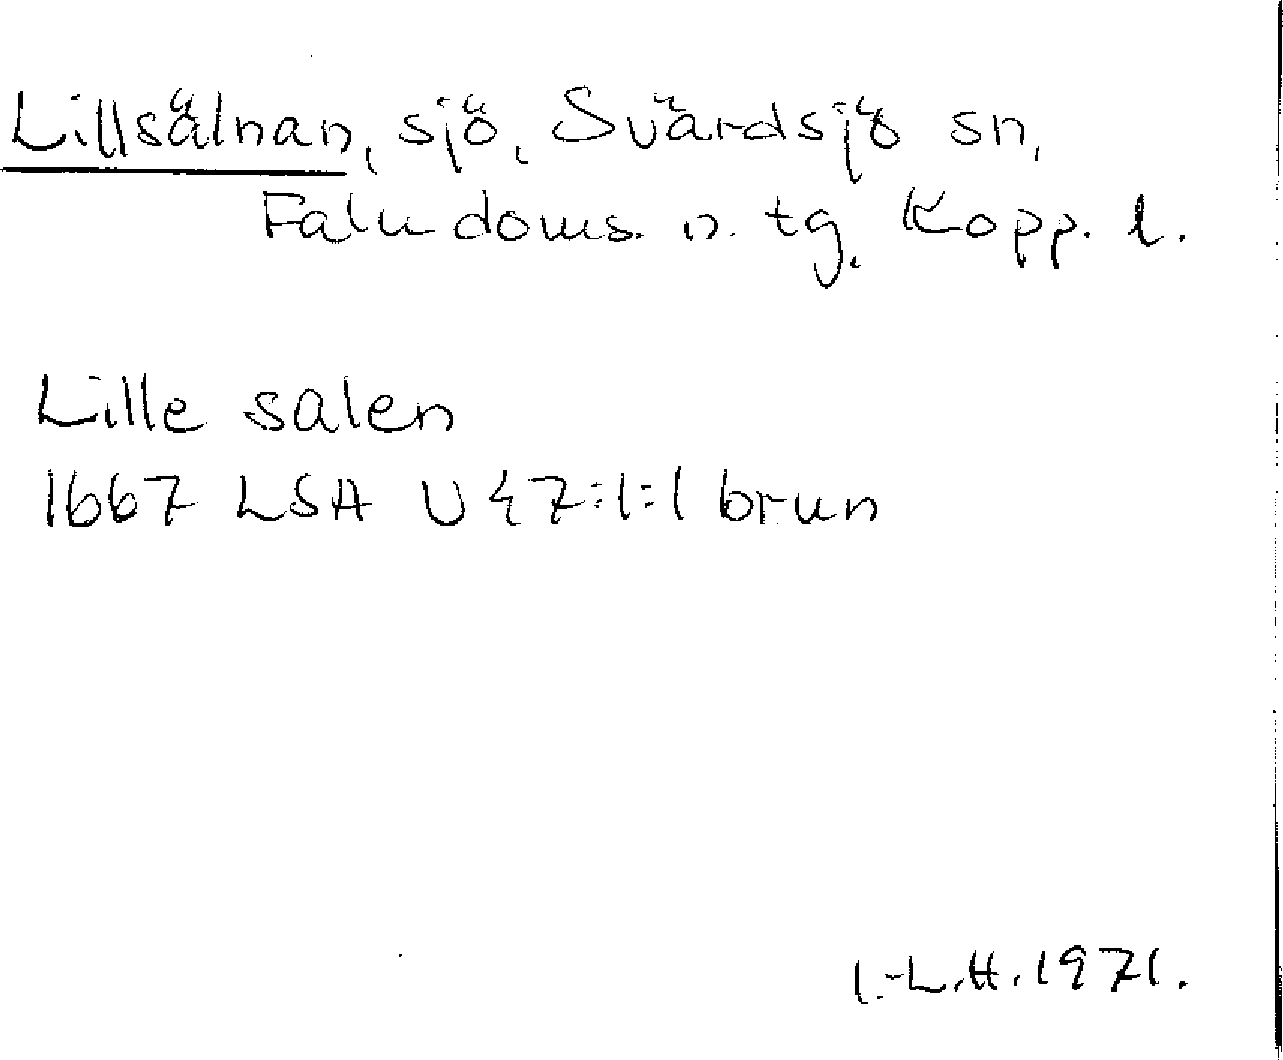 Lillsälnan, sjö, Svärdsjö sn,
Falu doms. n. tg, Kopp. l.
Lille salen
1667 LSA U 47:1:1 brun
I.-L.H. 1971.